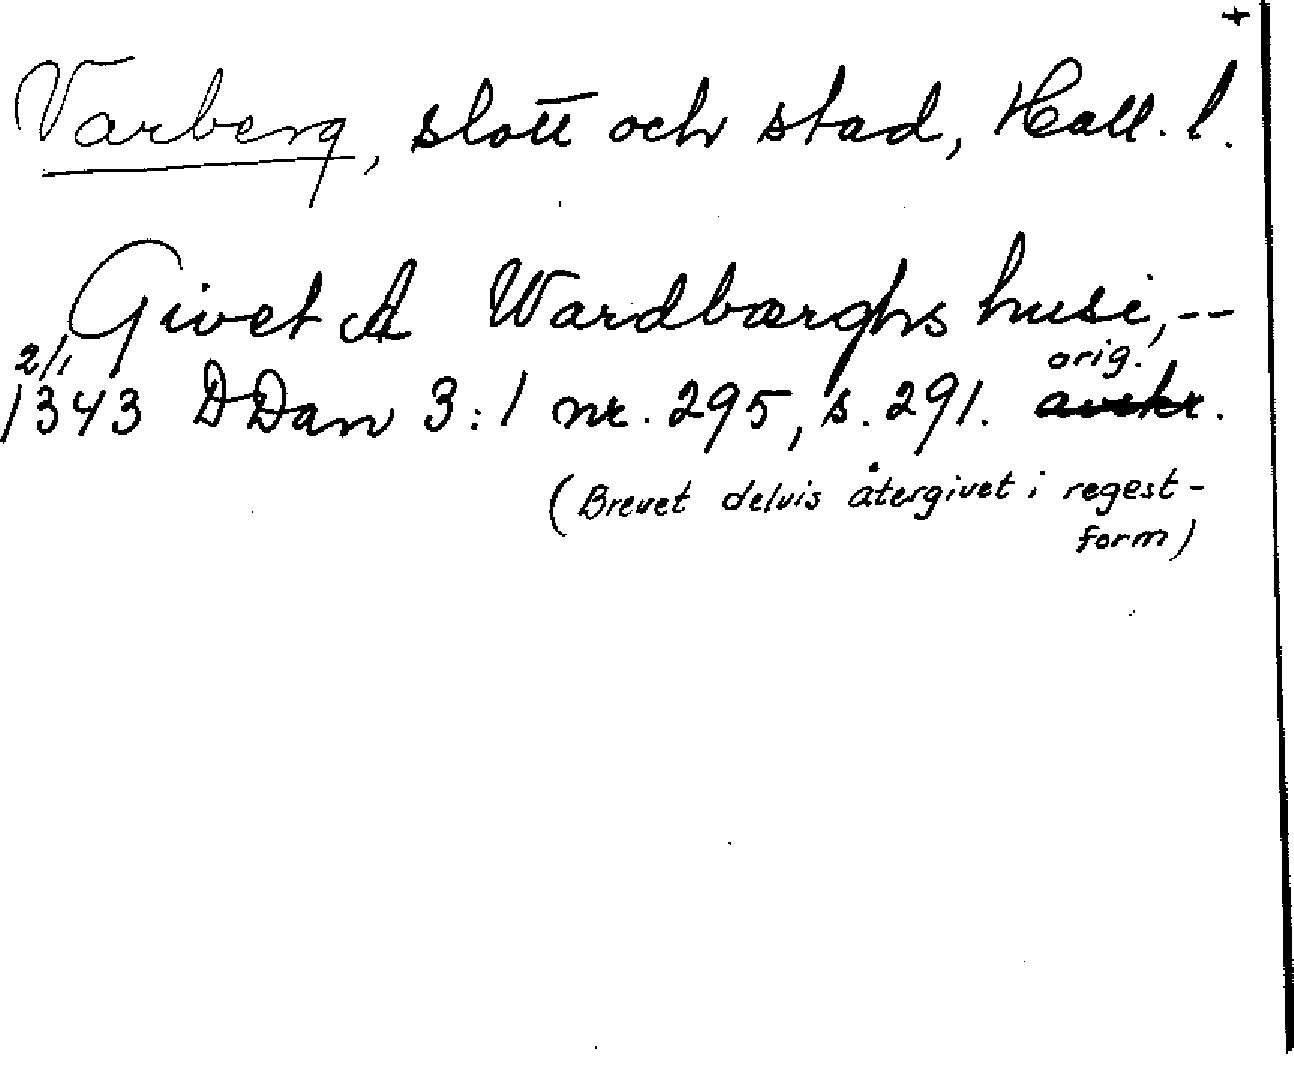 +
Varberg, slott och stad, Hall. l.
Givet A Wardbærghs husi, --
2/1 orig.
1343 DDan 3:1 nr. 295, s. 291. avskr.
(Brevet delvis återgivet i regest-
form)